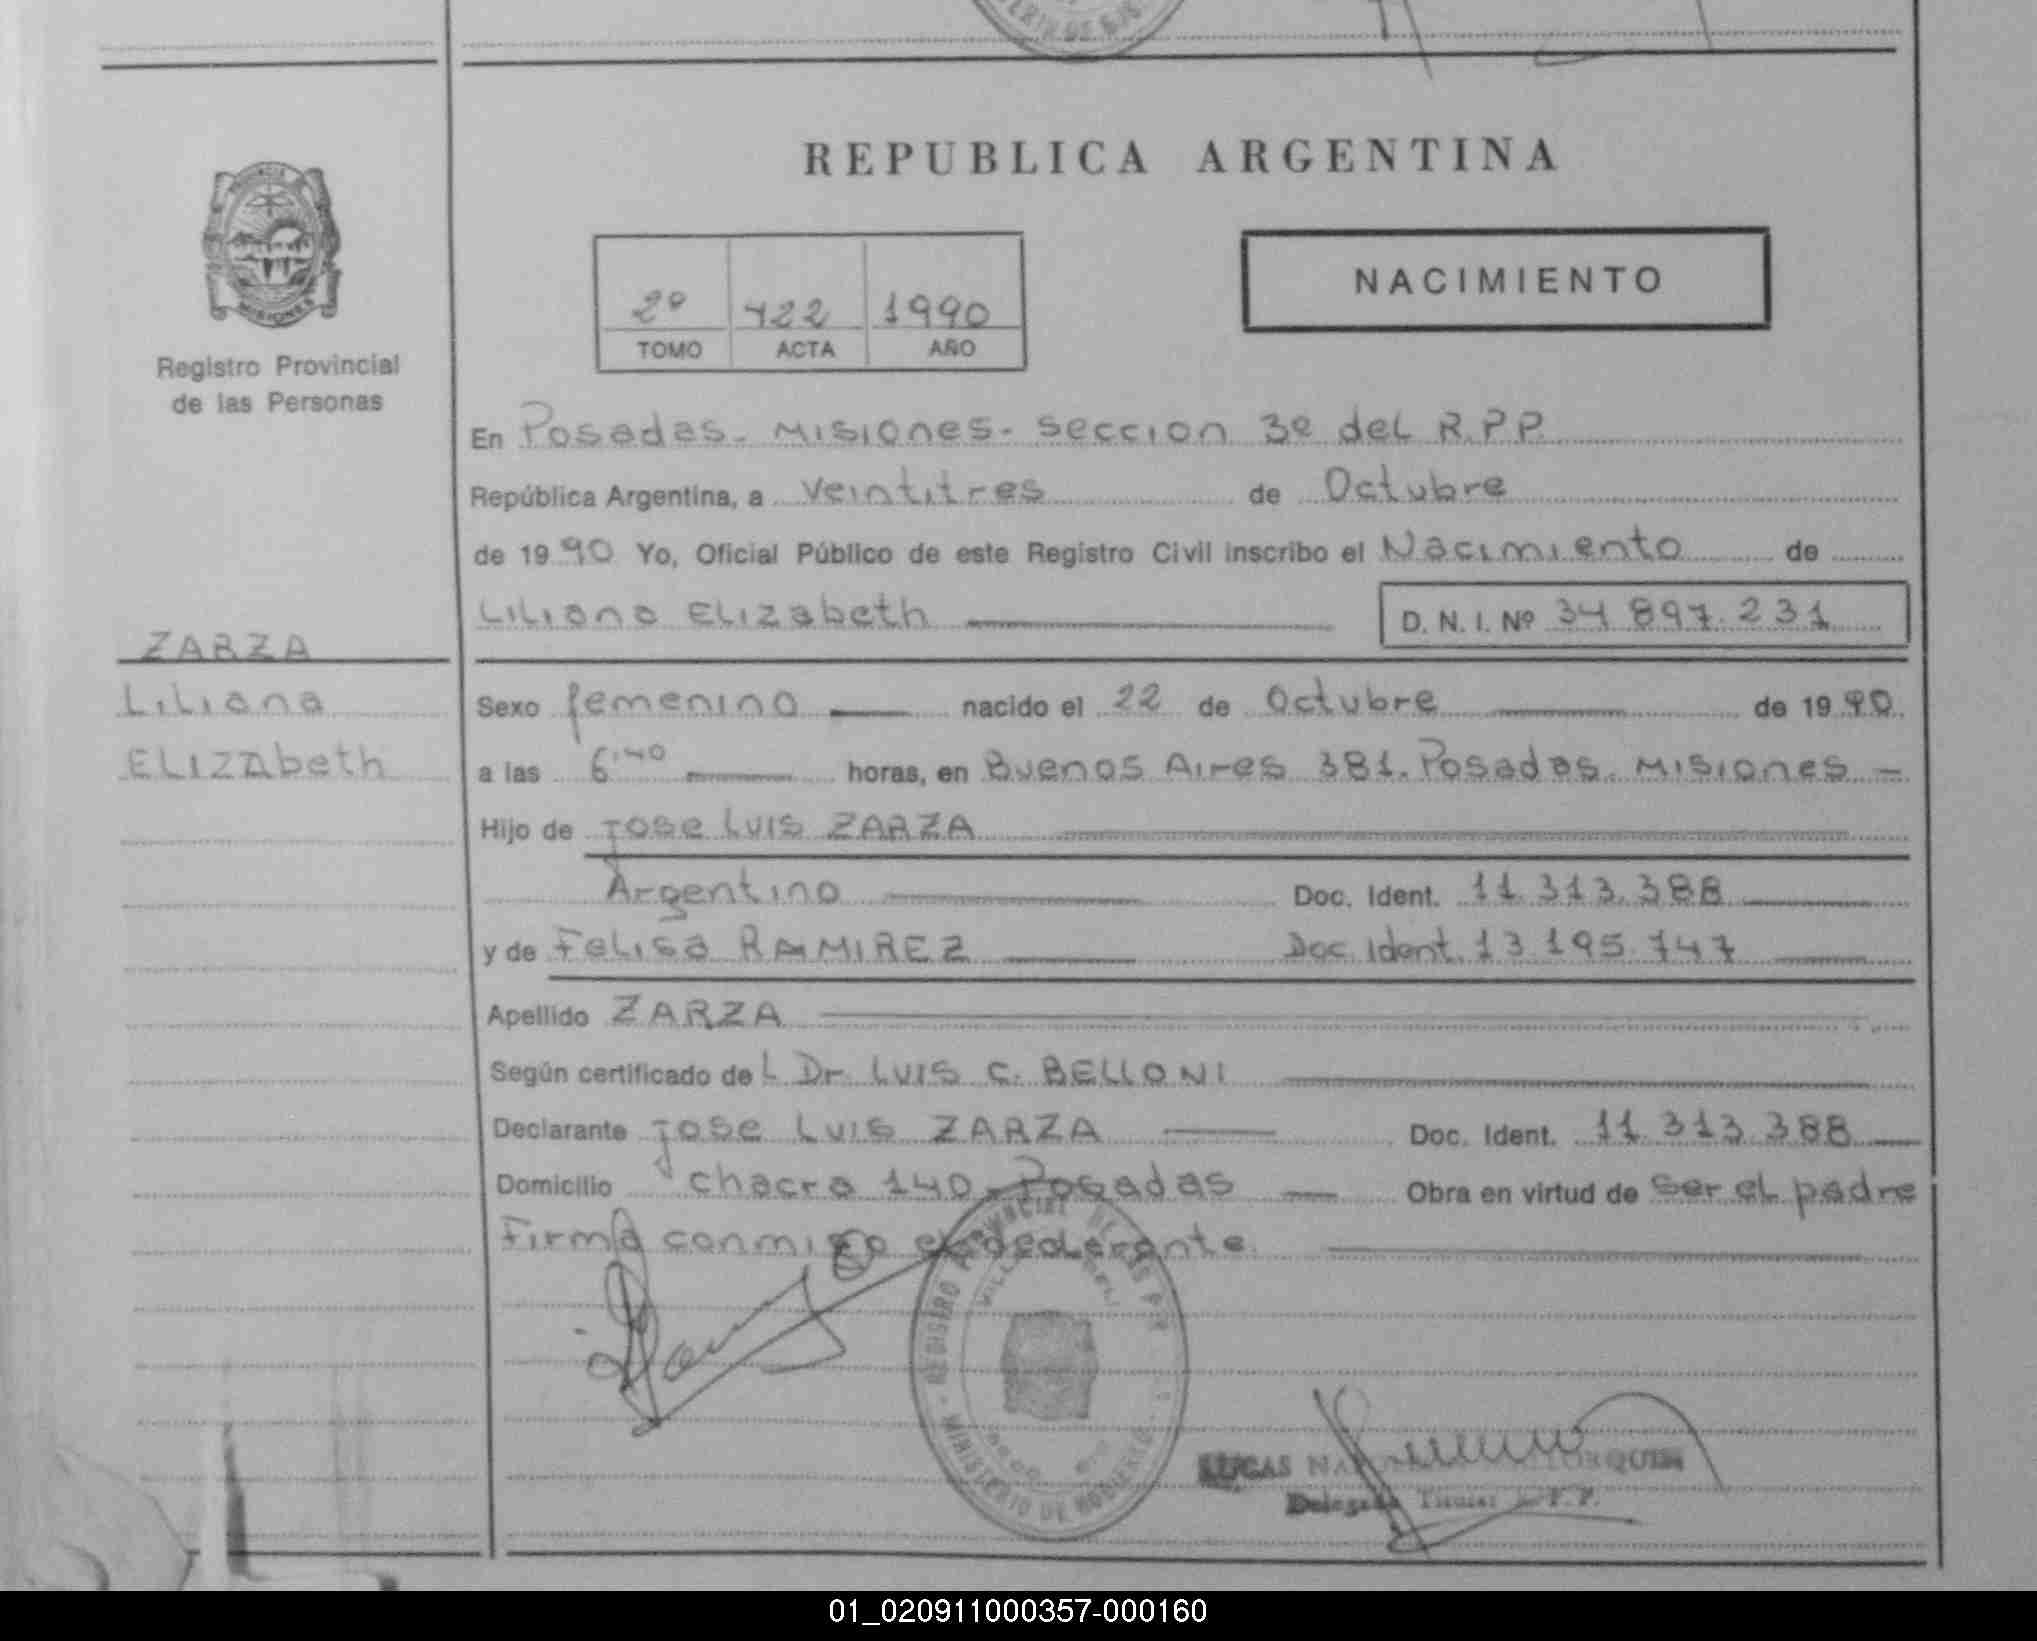 REPUBLICA ARGENTINA
MISIONES
Registro Provincial
de las Personas
NACIMIENTO
2º 422 1990
TOMO ACTA AÑO
En Posadas. Misiones. seccion 3º del R.P.P.
República Argentina, a veintitres de Octubre
de 1990 Yo, Oficial Público de este Registro Civil inscribo el Nacimiento de
Liliana Elizabeth D. N. I. Nº 34 897.231
ZARZA
Liliana
ELIZAbeth
Sexo femenino nacido el 22 de Octubre de 1990
a las 6'40 horas, en Buenos Aires 381. Posadas. Misiones -
Hijo de Jose Luis ZARZA
Argentino Doc. Ident. 11.313.388
y de Felisa RAMIREZ Doc. Ident. 13.195.747
Apellido ZARZA
Según certificado del Dr. LUIS C. BELLONI
Declarante Jose Luis ZARZA Doc. Ident. 11.313.388
Domicilio chacra 140. Posadas Obra en virtud de ser el padre
Firma conmigo el declarante
REGISTRO PROVINCIAL DE LAS
MINISTERIO DE GOBIERNO
LUCAS
Delegado Titular
01_020911000357-000160